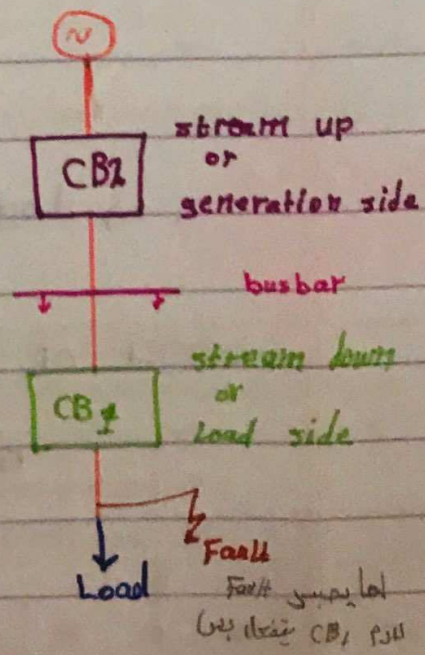 ~
CB2
stream up
or
generation side
busbar
stream down
or
Load side
CB1
Fault
Load
لما يحصل Fault
لازم CB1 يتفصل بس